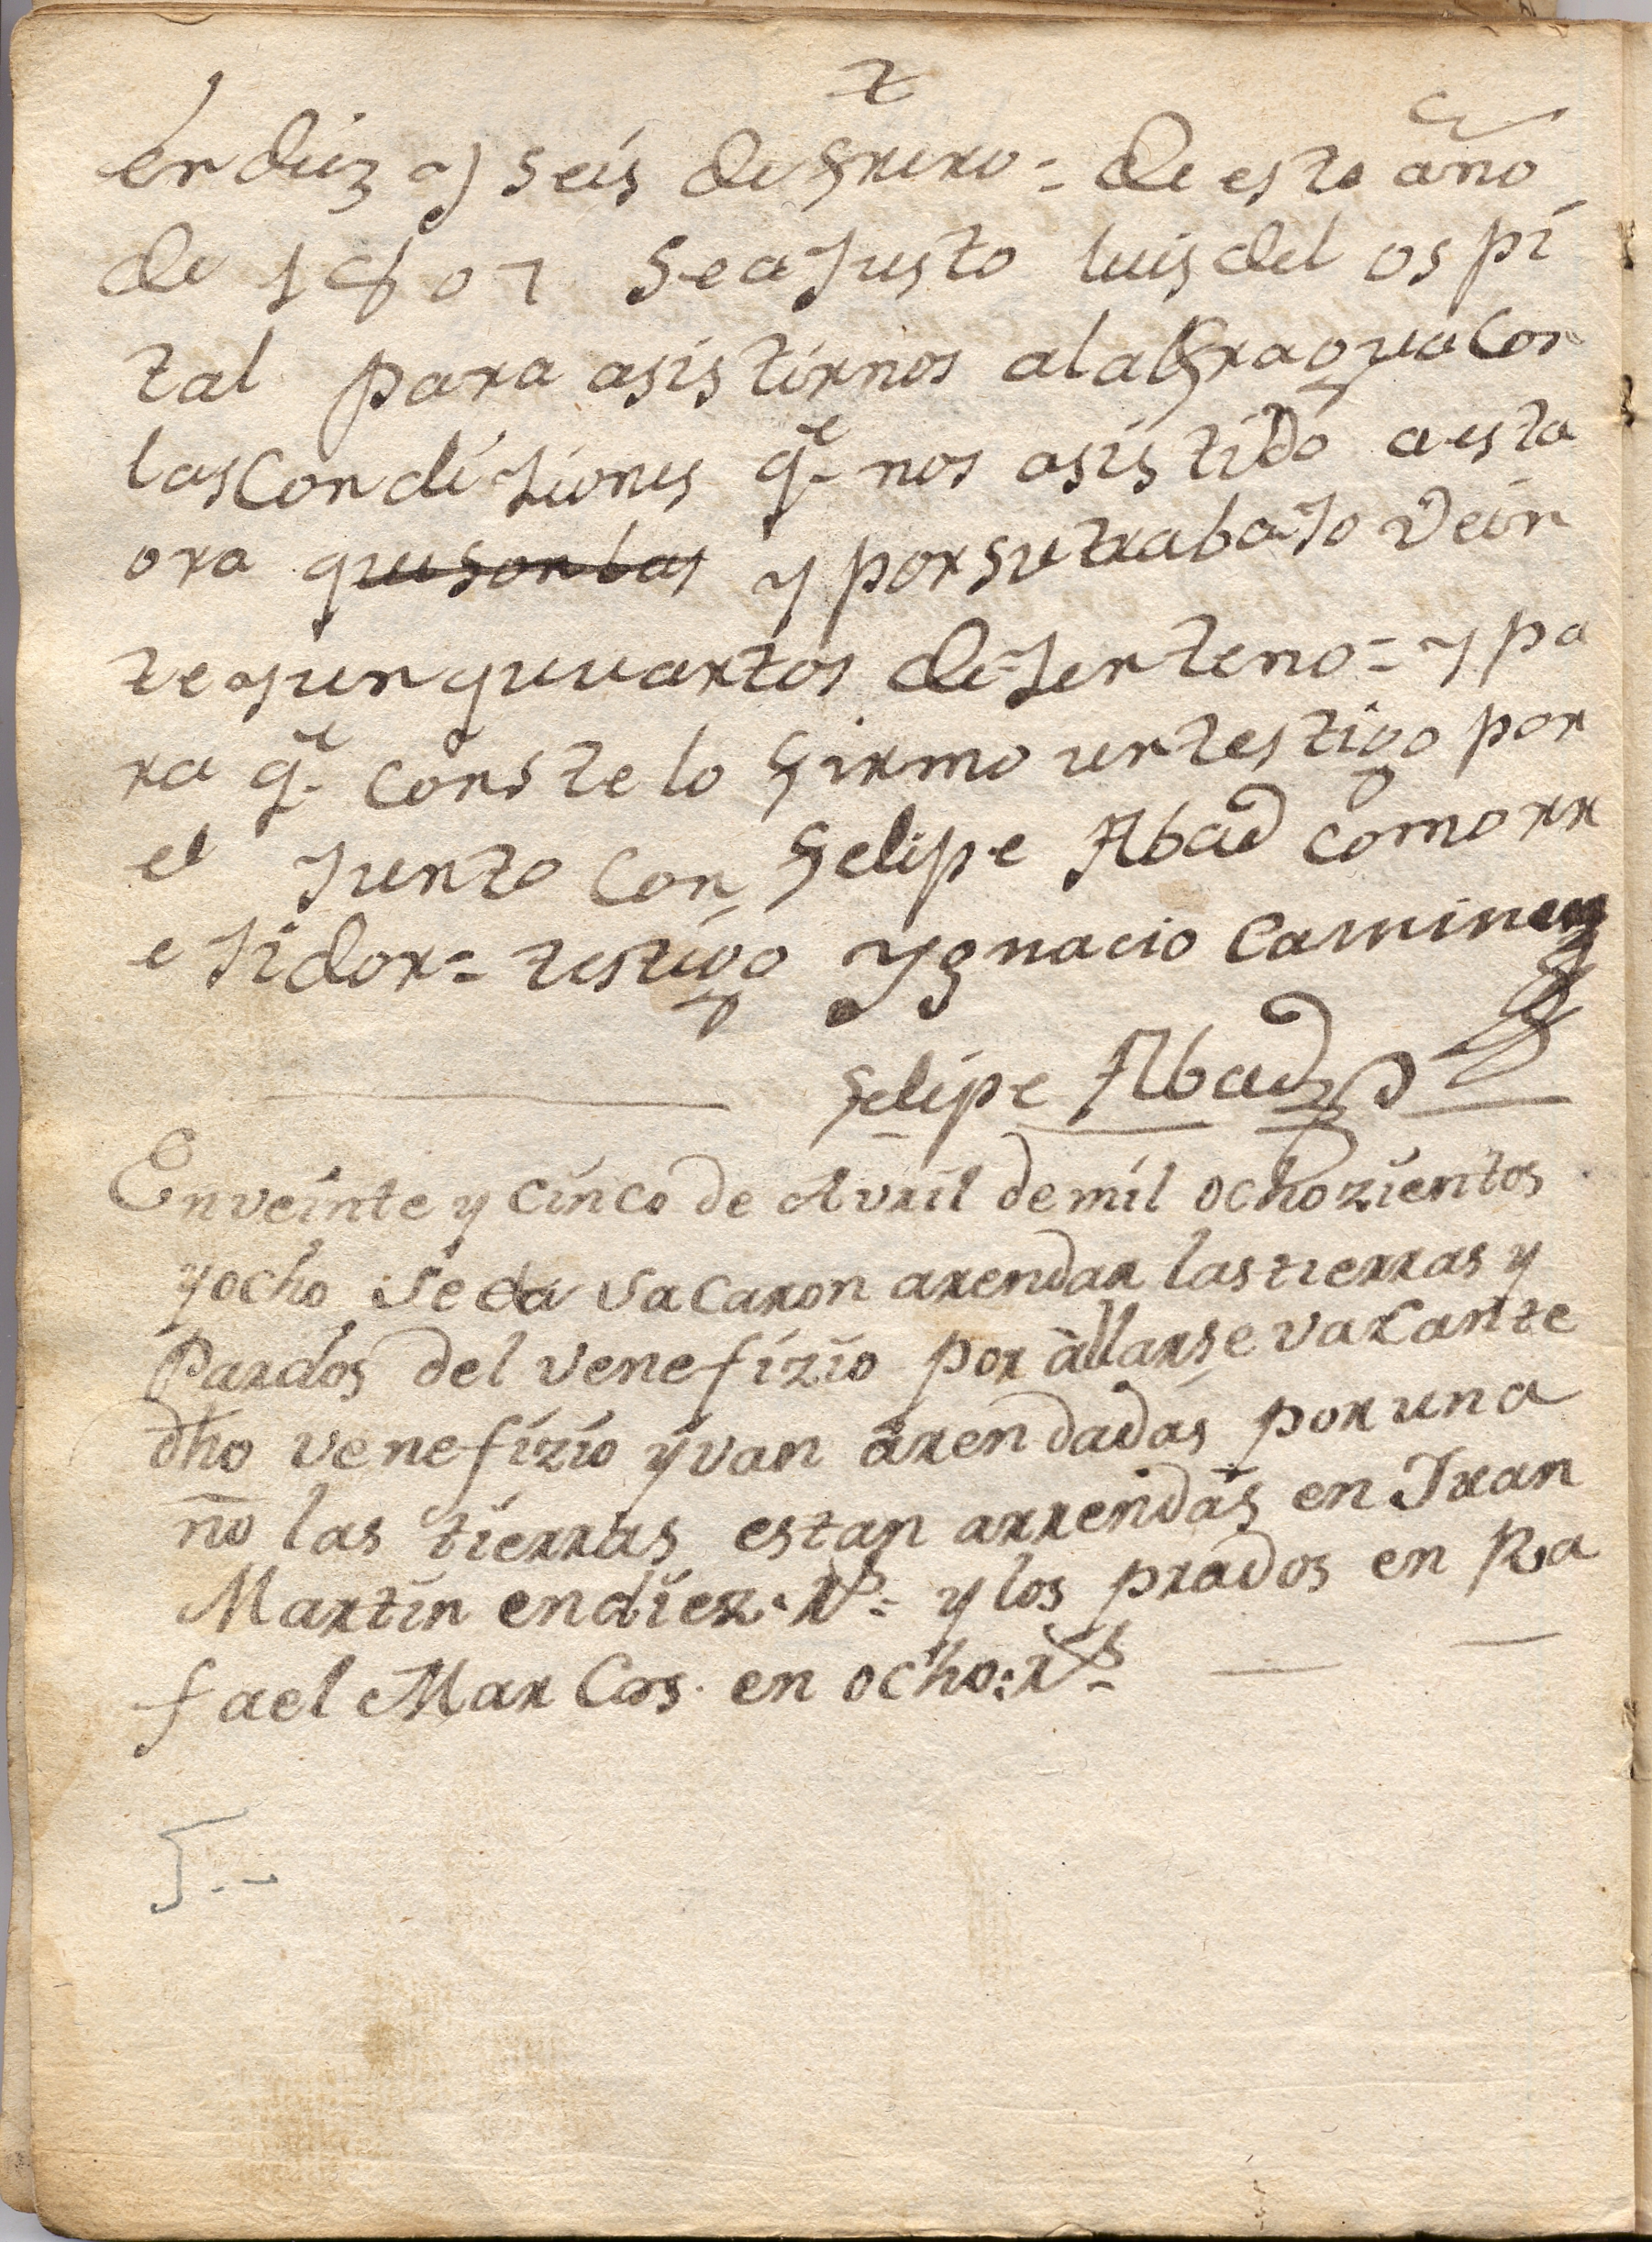 en diez y seis de frero = de este año
de 1807 se aJusto luis del ospi
tal para asistirnos ala fragua Con
las Condiziones q.e nos asistido a esta
ora que son las y por su trabaJo vein
te y un quuartos de zenteno = y pa
ra q.e conste lo firmo un testigo por
el Junto con felipe Abad como rr
e Jidor = testigo Ygnacio Caminero
felipe Abad
En veinte y cinco de Avril de mil ochozientos
y ocho se da sacaron arendar las tierras y
Pardos del venefizio por àllarse vacante
dho venefizio y van arendadas por una
ño las tierras estan arrendas en Jxan
Martin en diez. Rs = y los prados en Ra
fael MarCos. en ocho: Rs